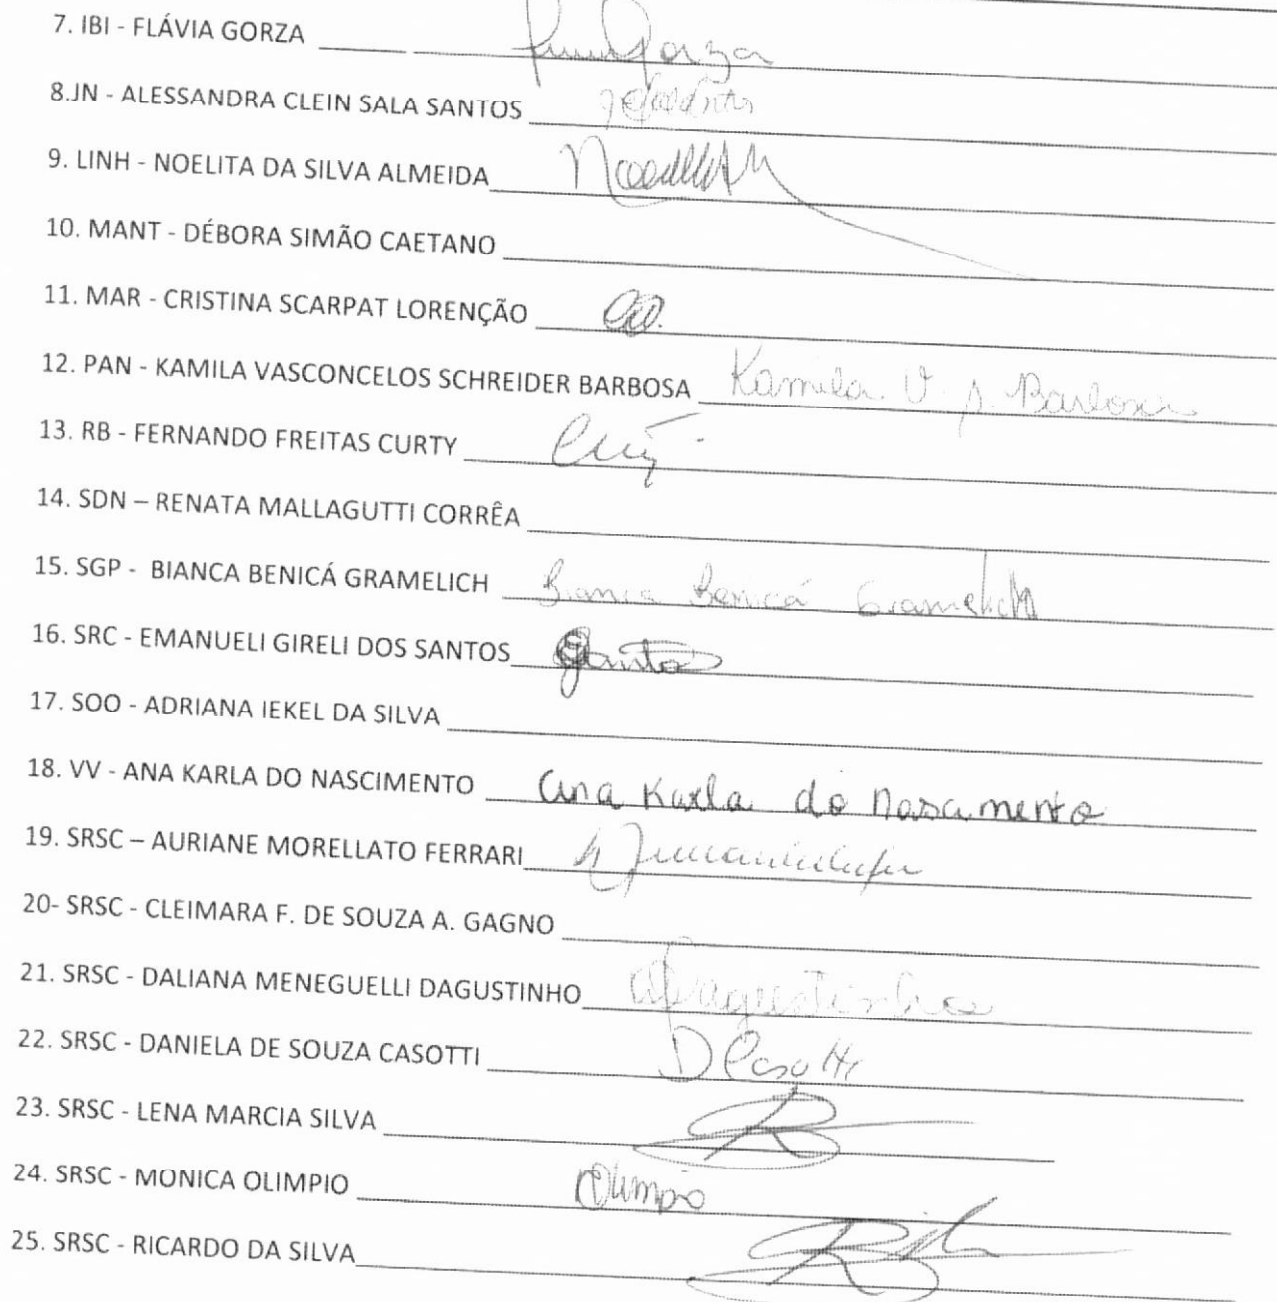 7. IBI - FLÁVIA GORZA Gorza
8.JN - ALESSANDRA CLEIN SALA SANTOS
9. LINH - NOELITA DA SILVA ALMEIDA
10. MANT - DÉBORA SIMÃO CAETANO
11. MAR - CRISTINA SCARPAT LORENÇÃO
12. PAN - KAMILA VASCONCELOS SCHREIDER BARBOSA Kamila V. S. Barbosa
13. RB - FERNANDO FREITAS CURTY
14. SDN – RENATA MALLAGUTTI CORRÊA
15. SGP - BIANCA BENICÁ GRAMELICH Bianca Benicá Gramelich
16. SRC - EMANUELI GIRELI DOS SANTOS
17. SOO - ADRIANA IEKEL DA SILVA
18. VV - ANA KARLA DO NASCIMENTO Ana Karla do Nascimento
19. SRSC – AURIANE MORELLATO FERRARI
20- SRSC - CLEIMARA F. DE SOUZA A. GAGNO
21. SRSC - DALIANA MENEGUELLI DAGUSTINHO
22. SRSC - DANIELA DE SOUZA CASOTTI DCasotti
23. SRSC - LENA MARCIA SILVA
24. SRSC - MONICA OLIMPIO Olimpio
25. SRSC - RICARDO DA SILVA